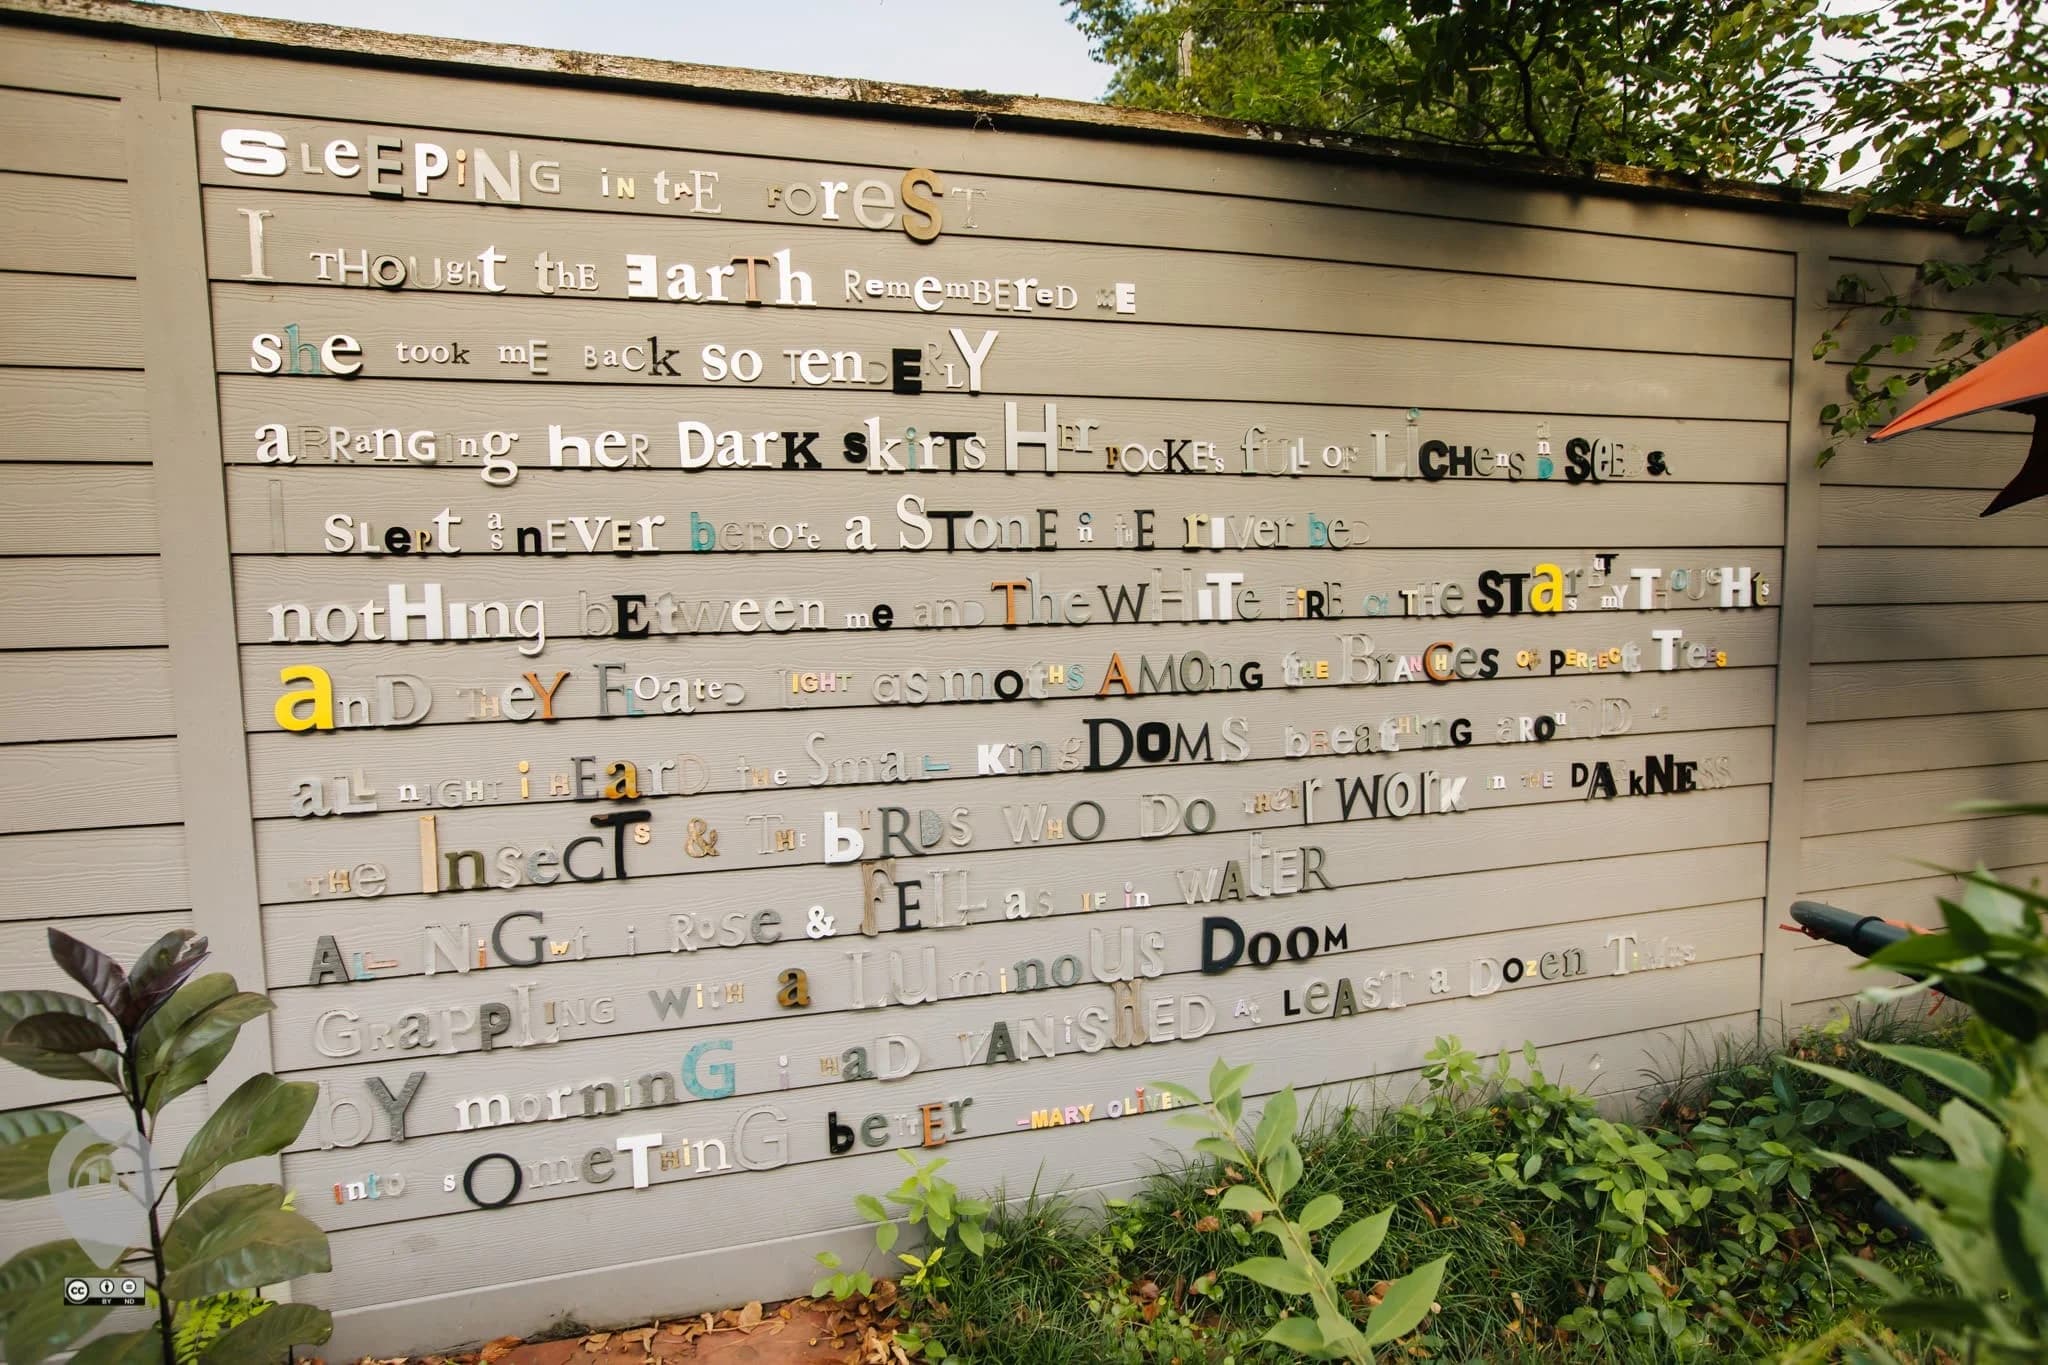 SLeEPiNG iN thE FOreST
I THOUght thE EarTh RememBEreD mE
she took mE BaCk so TenDERLY
aRRanGIng heR DarK skirTs HEr POCKEts fULL OF LiCHens anD SeEDs.
I SLept as nEVEr beFore a STonE in thE riVer beD
notHIng bEtween me anD The WHiTe FiRE OF THe STars bUT mY THOUGHts
anD THeY FLOateD LIGHT as moTHS AMOnG tHE BranCHes OF PERFECt TreEs
aLL nIGHT i HEarD tHe SmaLL KingDOMS bReatHInG aROunD me
THe InsecTs & THe biRDS WHO DO THEIr WOrk in THE DArkNESS
ALL NiGHt i RoSe & FELL as IF in WAtER
GRaPPLING WitH a LUminoUs DooM
bY mornInG i HaD VANiSHED At LeAsT a DOzen TiMes
into sOmeTHinG beTTEr -MARY OLiVER
CC BY ND